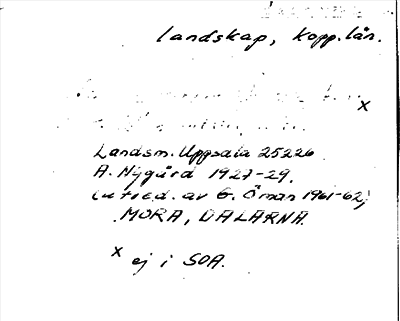 landskap, Kopp.län.
x
Landsm. Uppsala 25226
A. Nygård 1927-29.
av E. Öman 1961-62;
MORA, DALARNA.
x ej i SOA.